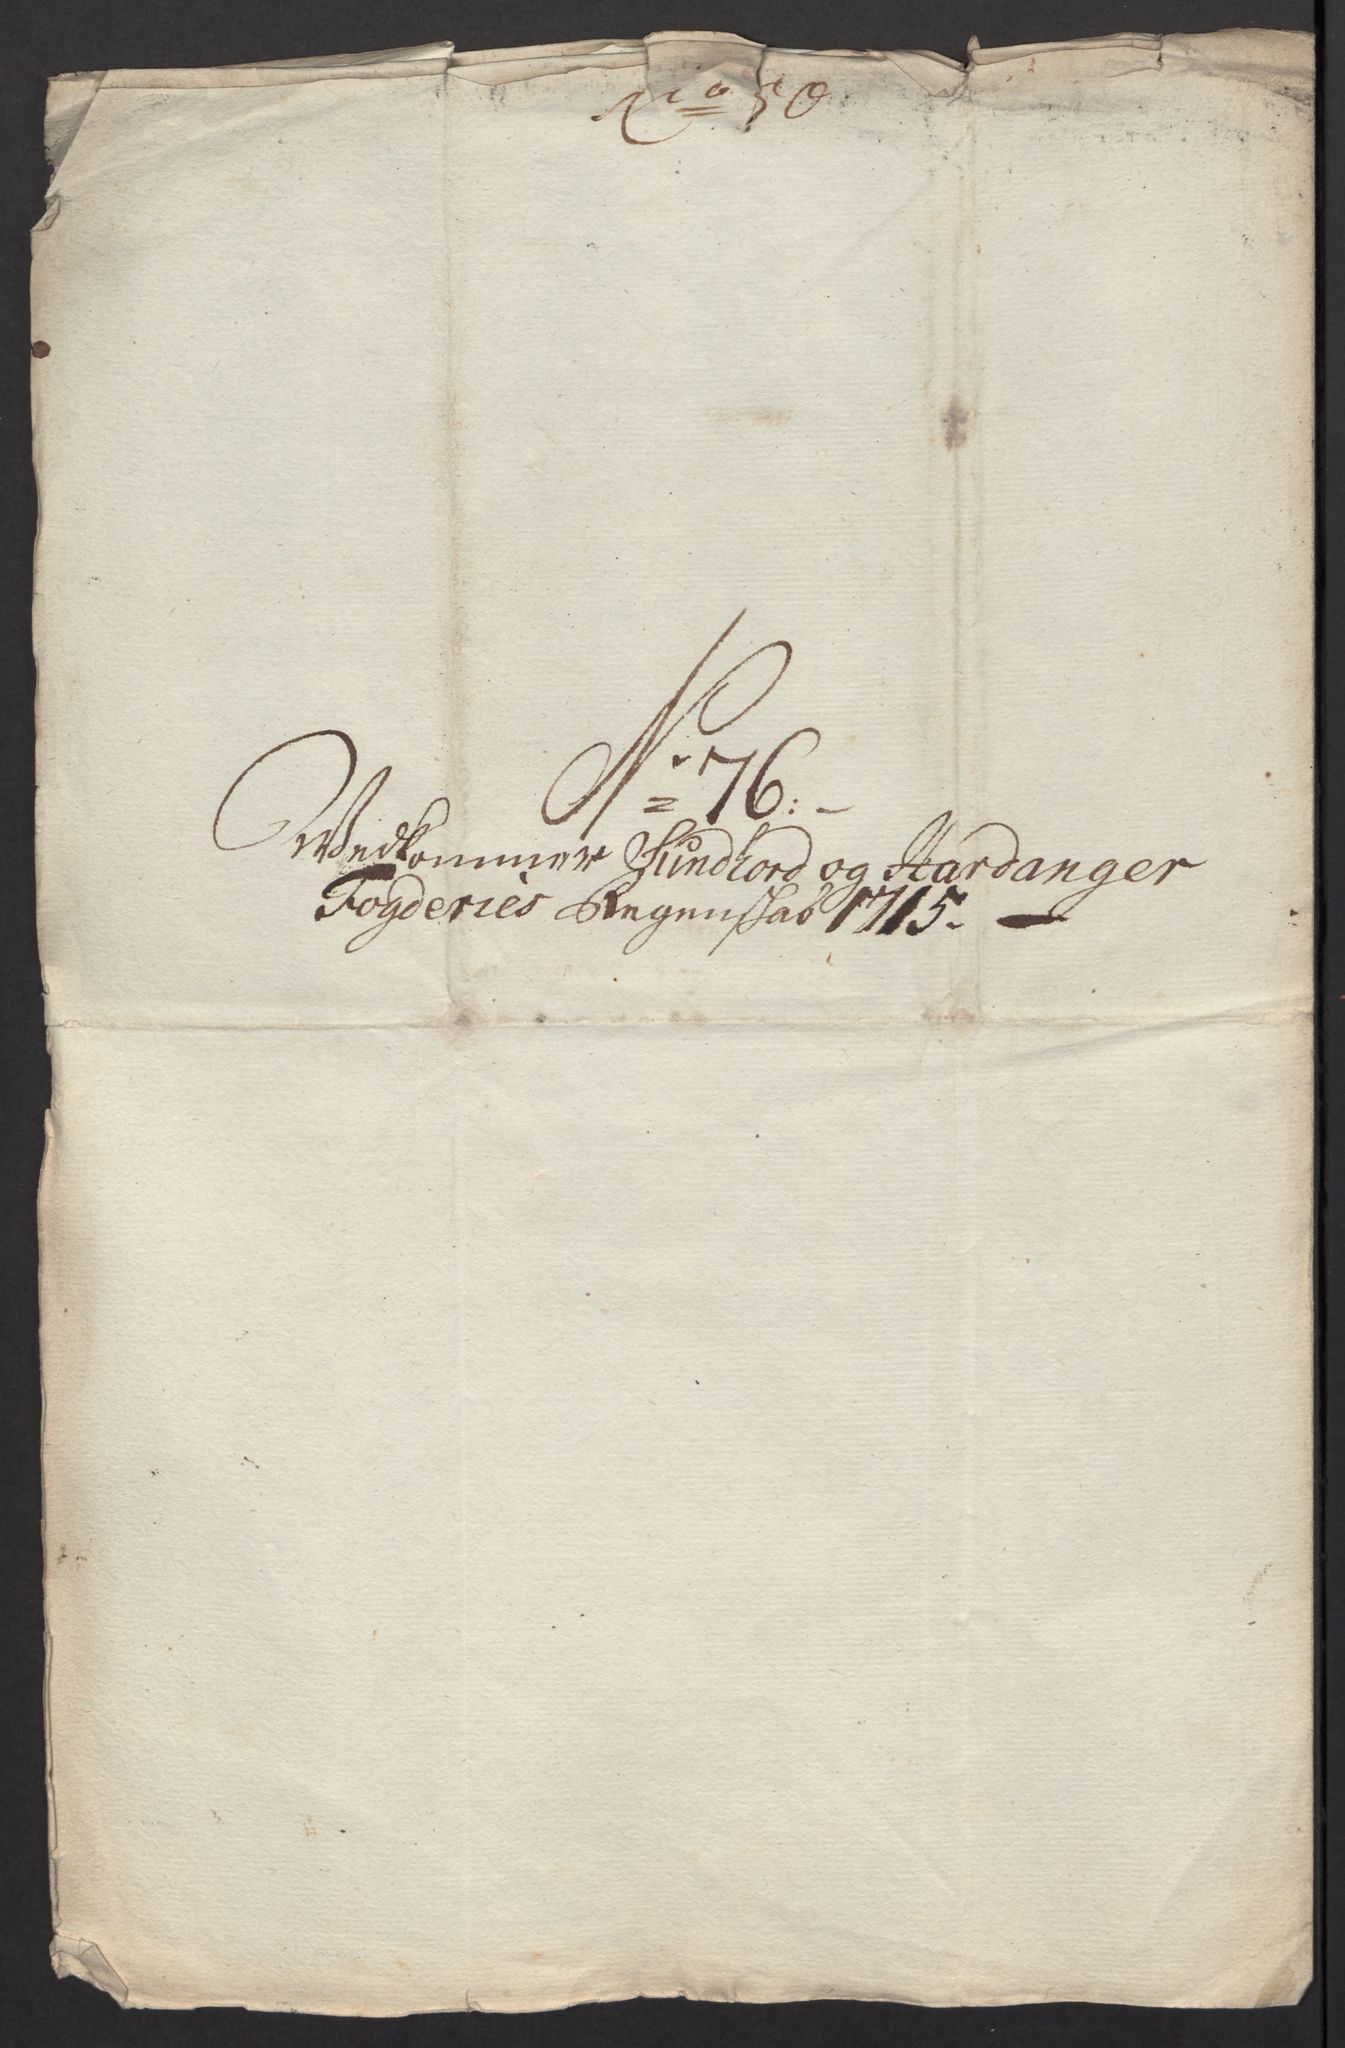 No 50
No 76:-
Vedkommer Sundhord og Hardanger
Fogderies Regenskab 1715.